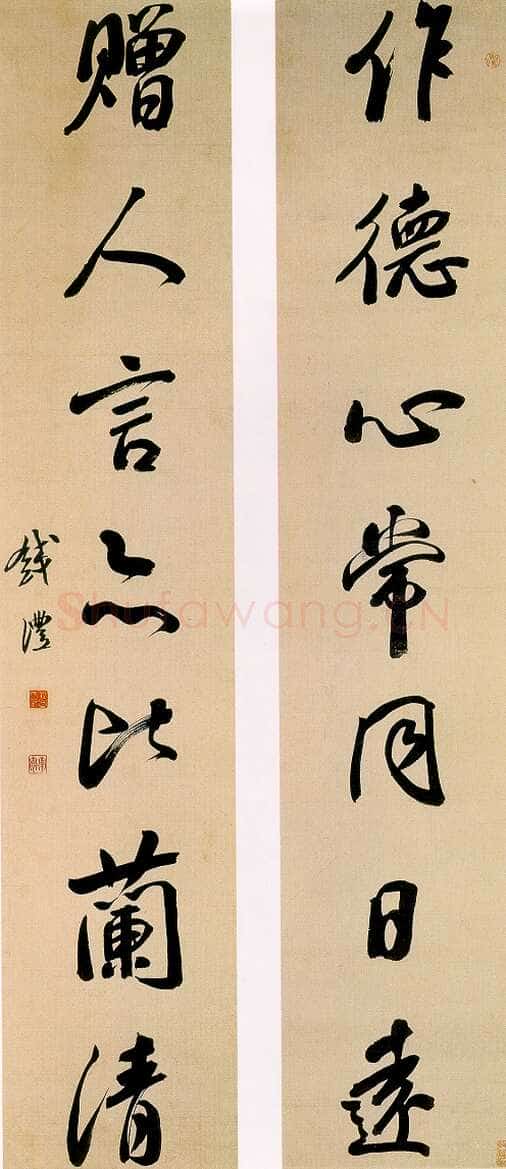 作德心常同日遠
贈人言亦比蘭清
錢灃
Shufawang.CN